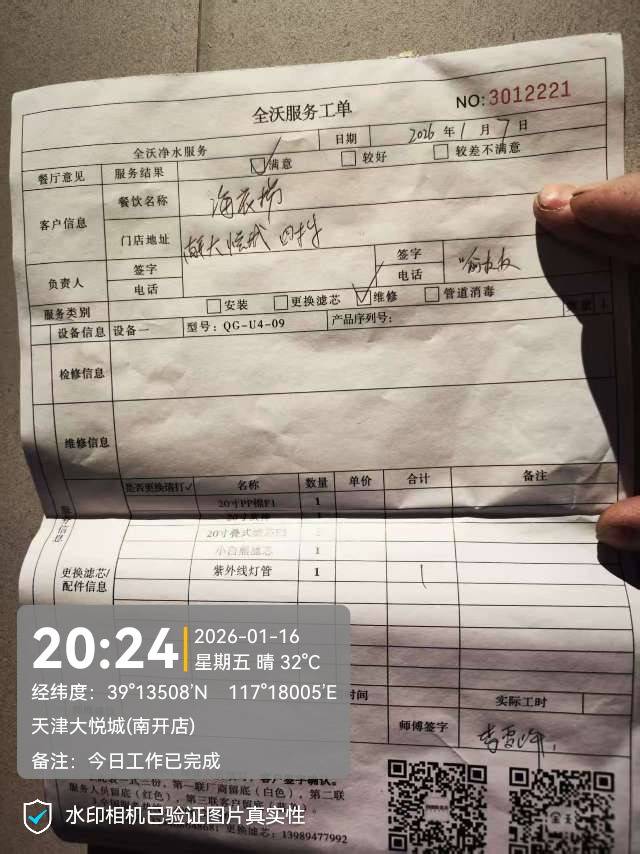 全沃服务工单
NO:3012221
全沃净水服务 日期 2026 年 1 月 7 日
餐厅意见 服务结果 满意 较好 较差不满意
客户信息 餐饮名称
门店地址 大悦城
负责人 签字 签字
电话 电话
服务类别 安装 更换滤芯 维修 管道消毒
设备信息 设备一 型号: QG-U4-09 产品序列号: 数量 1
检修信息
维修信息
是否更换请打✓ 名称 数量 单价 合计 备注
20寸PP棉F1 1
20寸叠式滤芯F1
小白熊滤芯 1
更换滤芯/ 紫外线灯管 1
配件信息
20:24
2026-01-16
星期五 晴 32°C
经纬度: 39°13508′N 117°18005′E
天津大悦城(南开店)
备注: 今日工作已完成
时间 实际工时
师傅签字
客户签字确认。
服务人员留底(红色)，第一联厂商留底(白色)，第二联
第三联客户留底
更换滤芯: 13989477992
水印相机已验证图片真实性